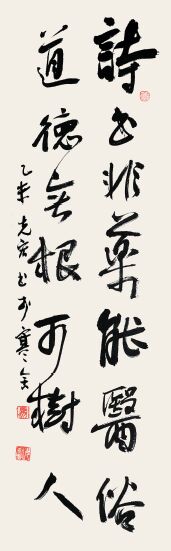 詩書非藥能醫俗
道德無根可樹人
乙未克宏書於寒舍